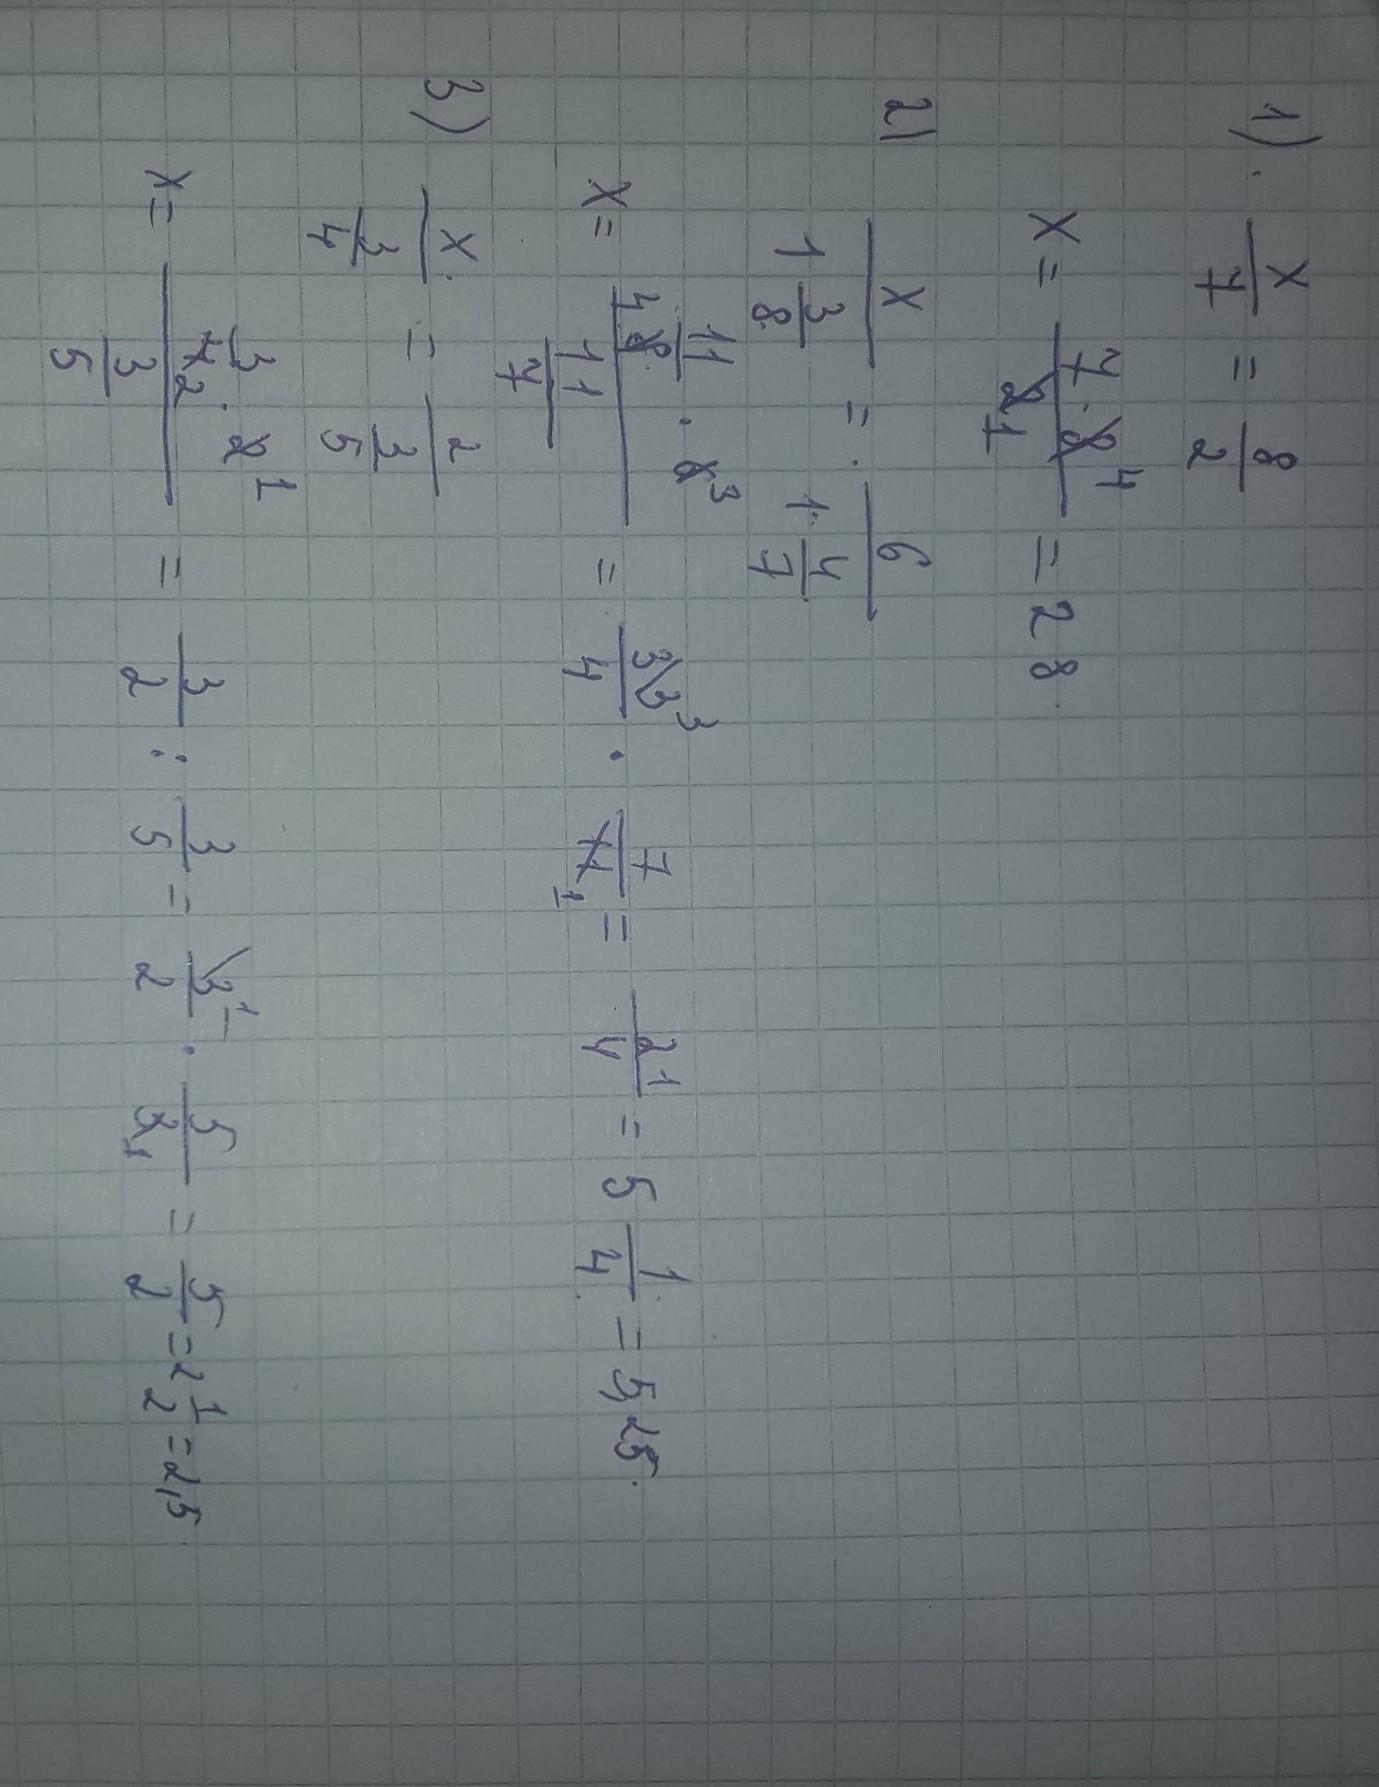 1). x/7 = 8/2
x = 7·8 4/2 1 = 28
2) x/1 3/8 = 6/1 4/7
x = 11/8 4 · 6 3/11/7 = 33 3/4 · 7/11 1 = 21/4 = 5 1/4 = 5,25
3) x/3/4 = 2/3/5
x = 3/4 2 · 2 1/3/5 = 3/2 : 3/5 = 3 1/2 · 5/3 1 = 5/2 = 2 1/2 = 2,5